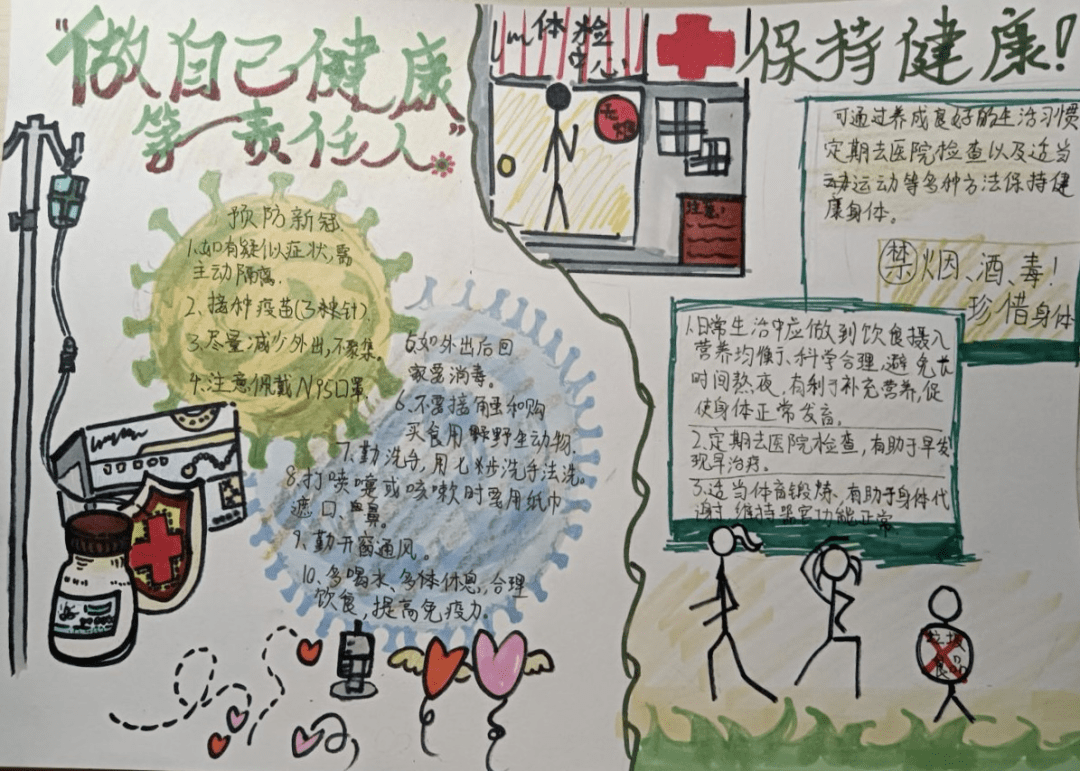 “做自己健康
第一责任人”
预防新冠
1、如有疑似症状,需
主动隔离.
2、接种疫苗(3针).
3、尽量减少外出,不聚集。
4、注意佩戴N95口罩
5.如外出后回
家要消毒。
6、不要接触和购
买食用野野生动物.
7、勤洗手,用七步洗手法洗。
8、打喷嚏或咳嗽时要用纸巾
遮口、鼻。
9、勤开窗通风。
10、多喝水,多体休息,合理
饮食,提高免疫力。
体检
中心
无烟
注意!
保持健康!
可通过养成良好的生活习惯
定期去医院检查以及适当
动运动等多种方法保持健
康身体。
禁烟、酒、毒!
珍惜身体
1.日常生活中应做到饮食摄入
营养均衡、科学合理,避免长
时间熬夜,有利于补充营养,促
使身体正常发育。
2.定期去医院检查,有助于早发
现早治疗。
3、适当体育锻炼、有助于身体代
谢,维持器官功能正常
垃圾
食品